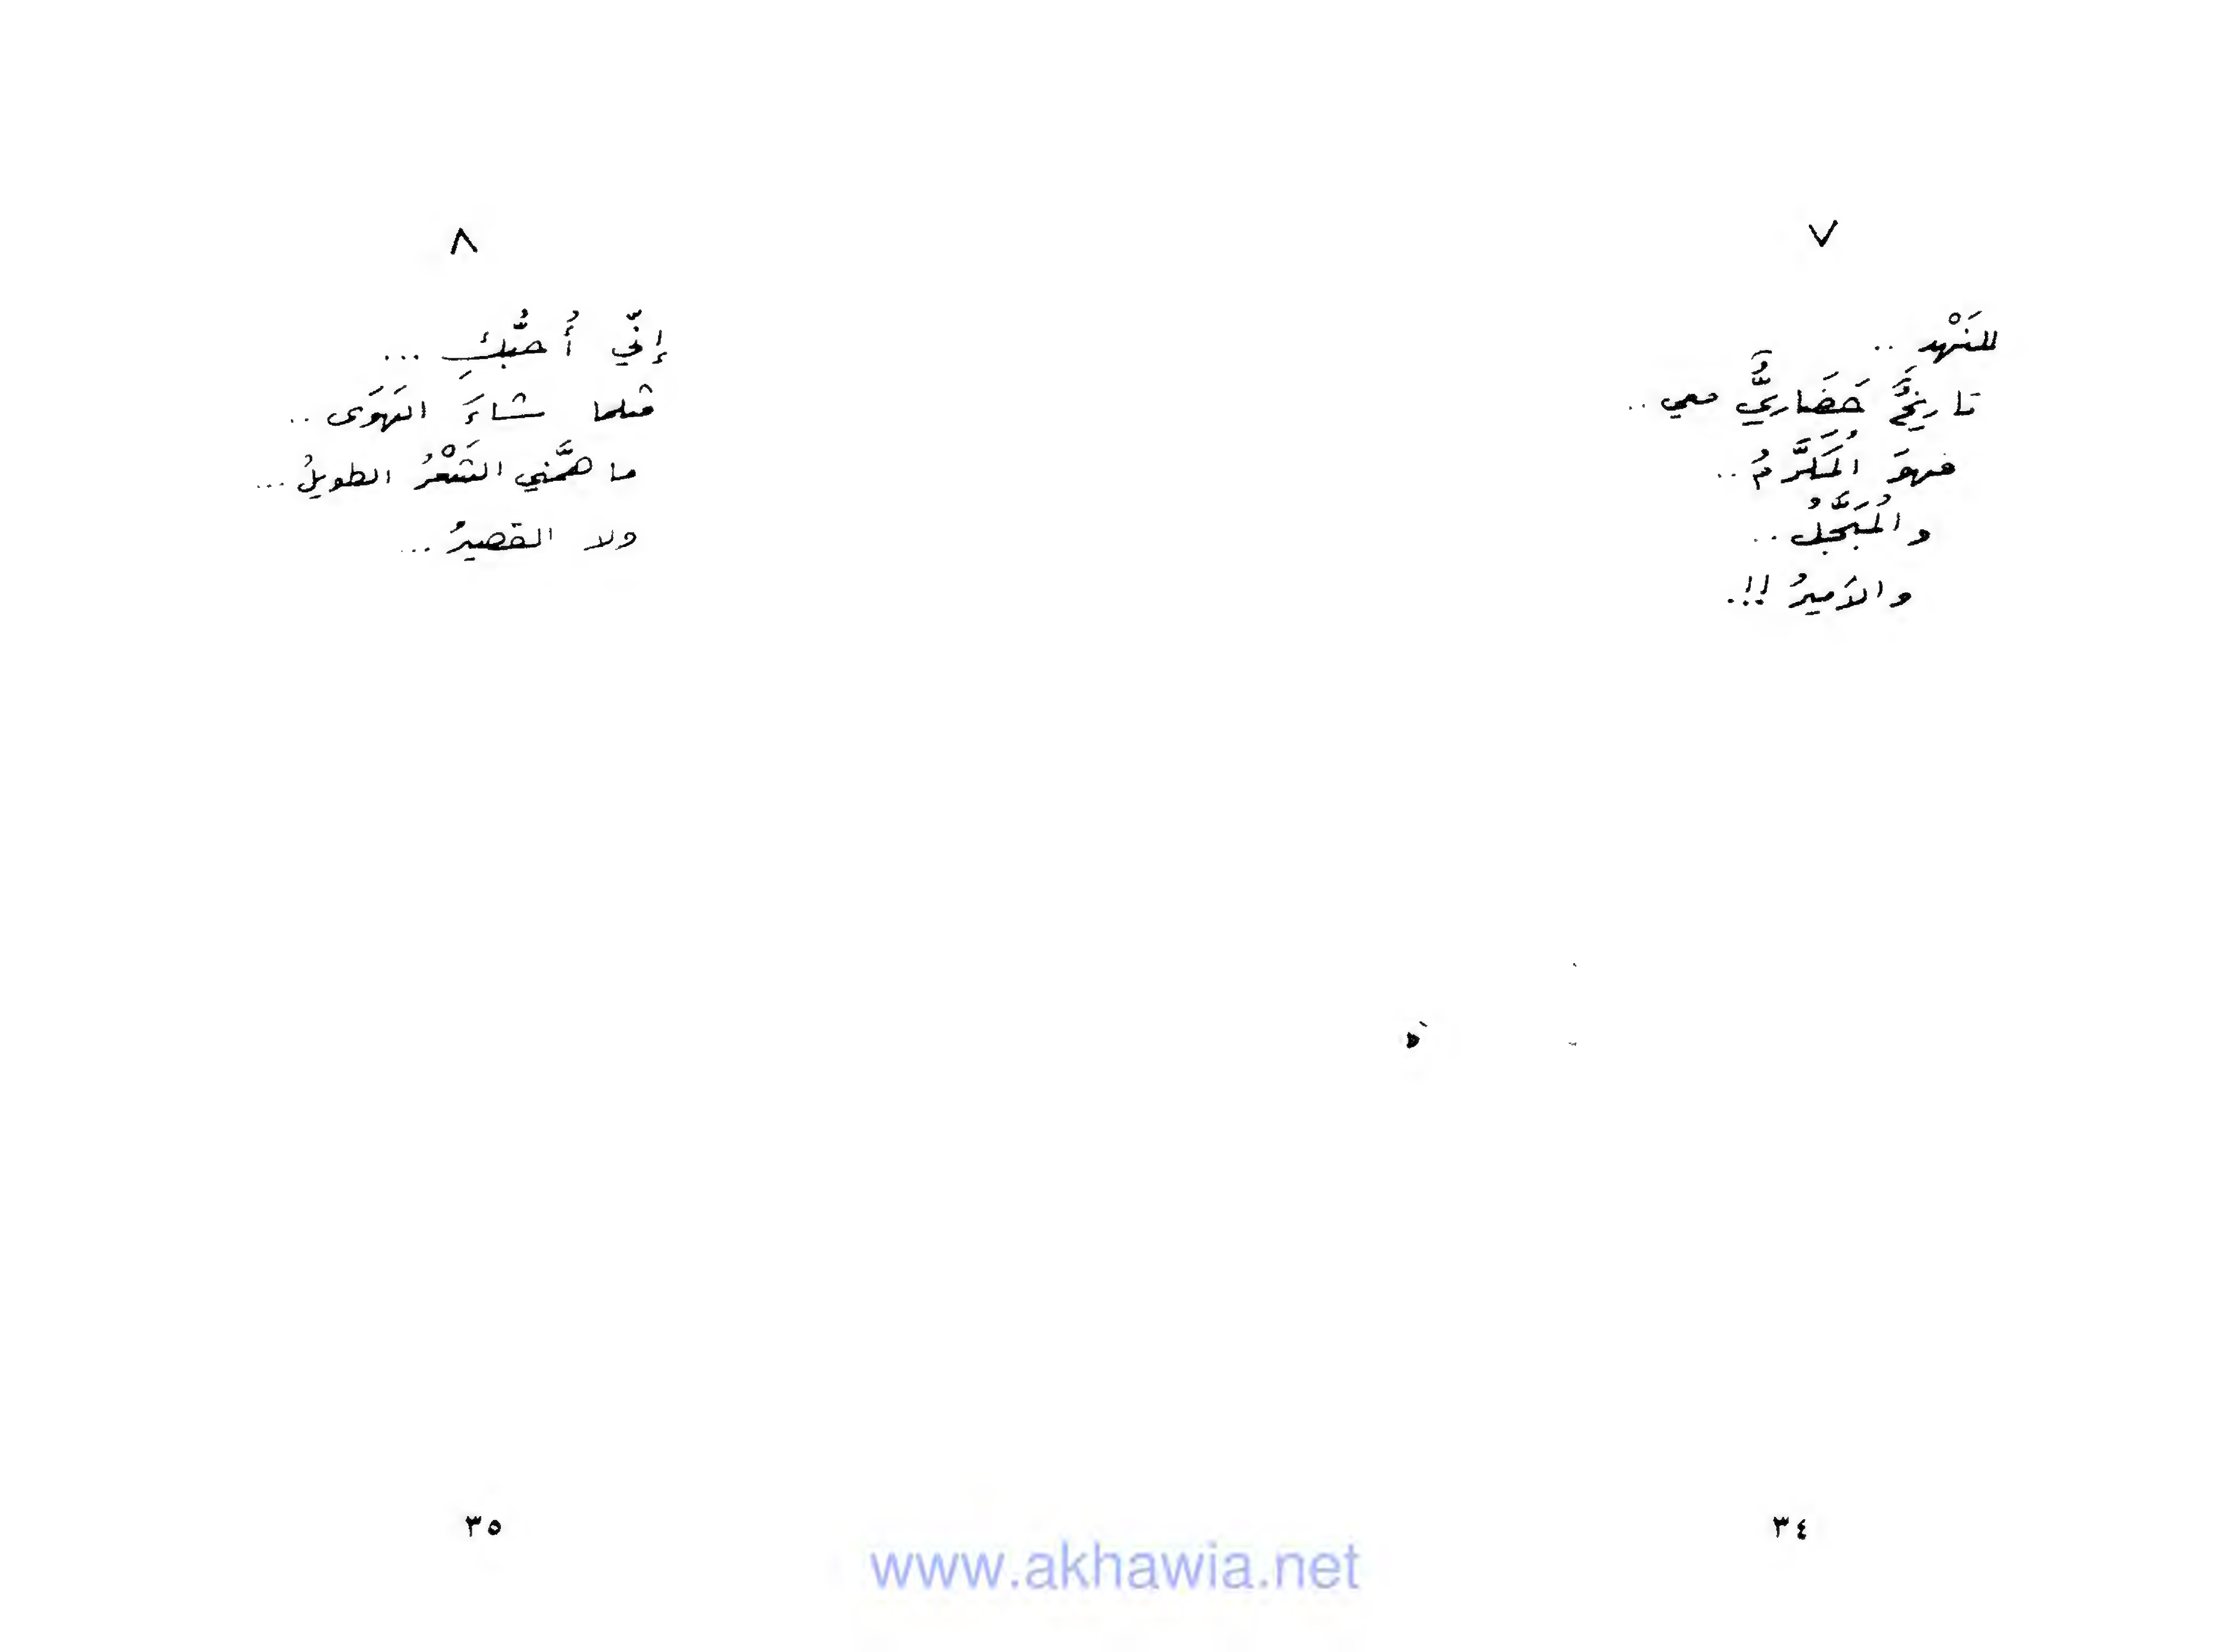 ٧
للنَهْد ..
تاريخٌ حَضَاريٌّ معي ..
فهوَ المُكَرَّمُ ..
والمُبَجَّلُ ..
والأميرُ !!.
٣٤
٨
إنّي أُحبُّكِ ...
مثلما شاءَ الهَوَى ..
ما همَّني الشَعْرُ الطويلُ ...
ولا القصيرُ ...
٣٥
www.akhawia.net